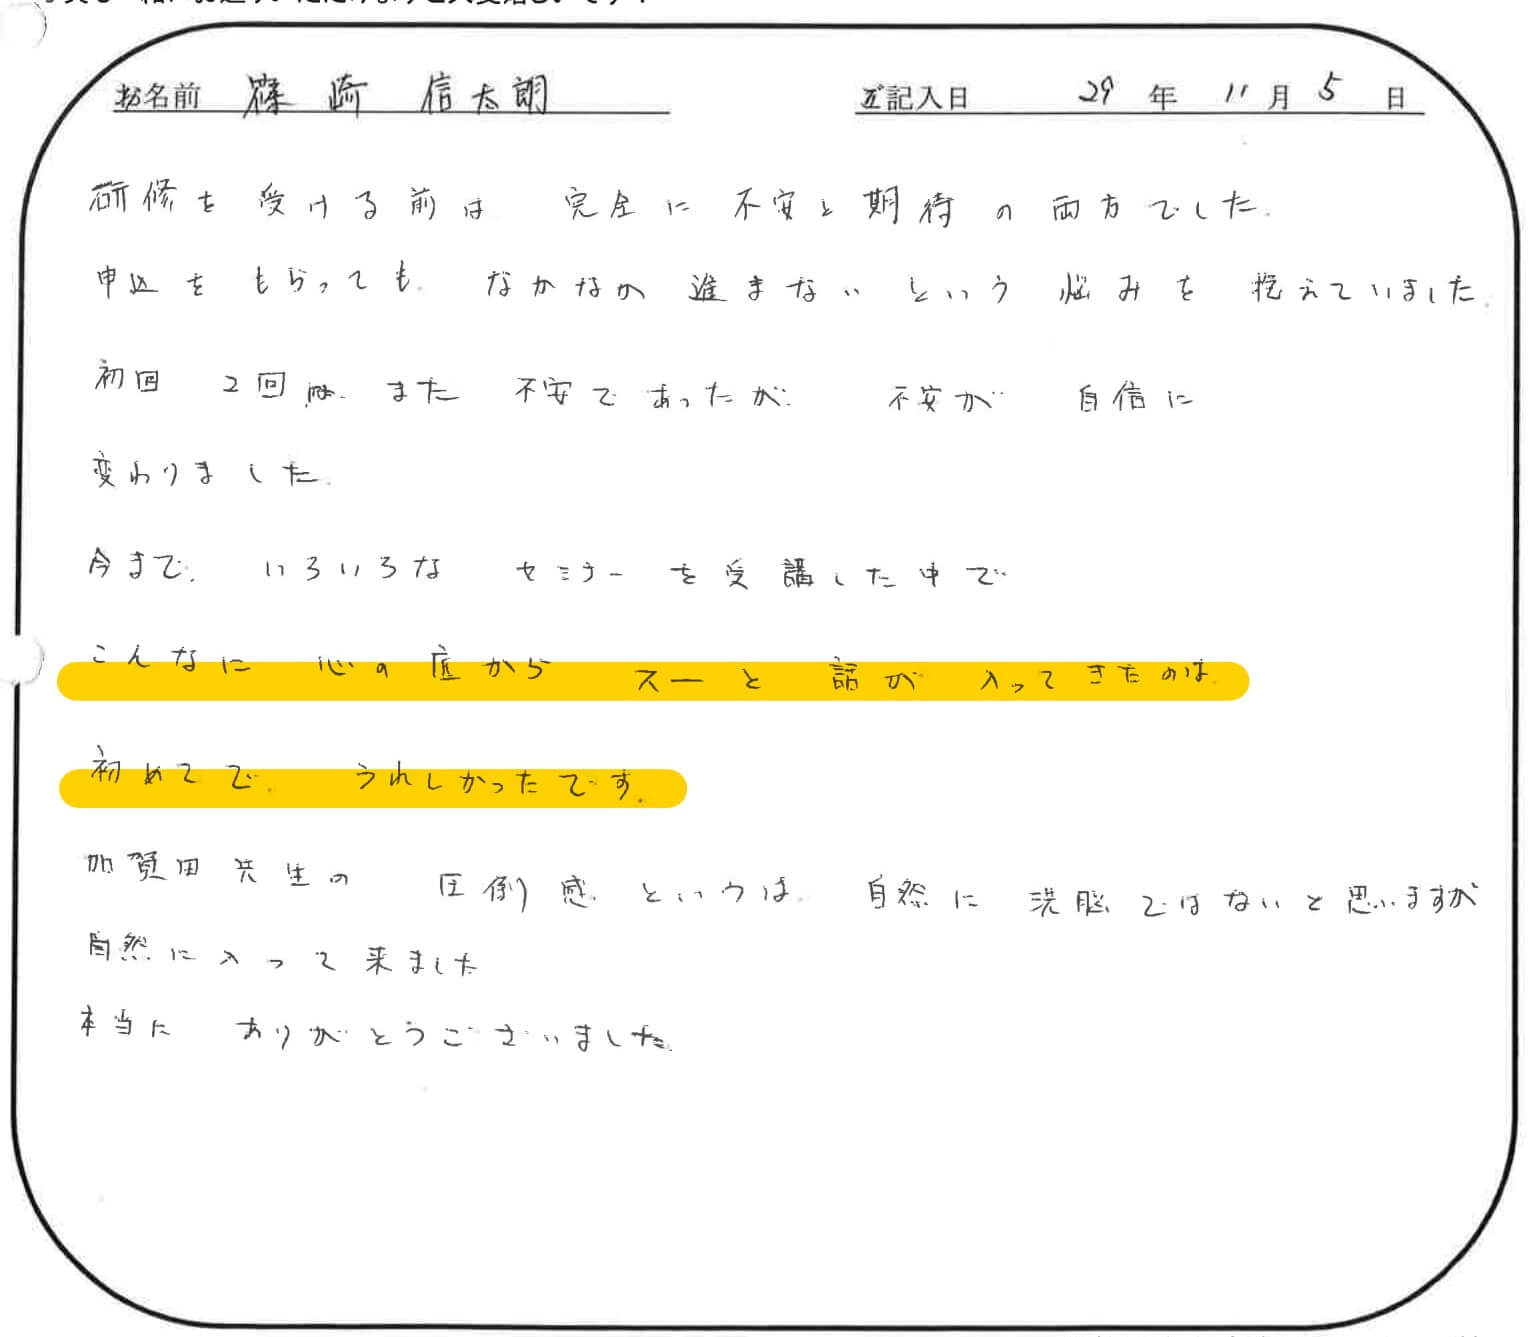 お名前 篠崎 信太朗 ご記入日 29年 11月 5日
研修を受ける前は 完全に不安と期待の両方でした。
申込をもらっても、なかなか進まないという悩みを抱えていました。
初回 2回 また不安であったが、不安が自信に
変わりました。
今まで、いろいろなセミナーを受講した中で
こんなに心の底から スーと話が入ってきたのは、
初めてで、うれしかったです。
加賀田先生の圧倒感というは、自然に洗脳ではないと思いますが
自然に入って来ました
本当に ありがとうございました。